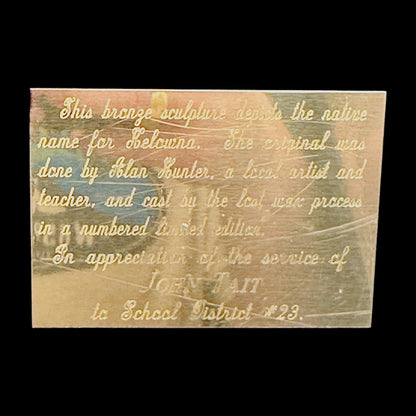 This bronze sculpture depicts the native
name for Kelowna. The original was
done by Alan Hunter, a local artist and
teacher, and cast by the lost wax process
in a numbered limited edition.
In appreciation of the service of
JOHN TAIT
to School District #23.